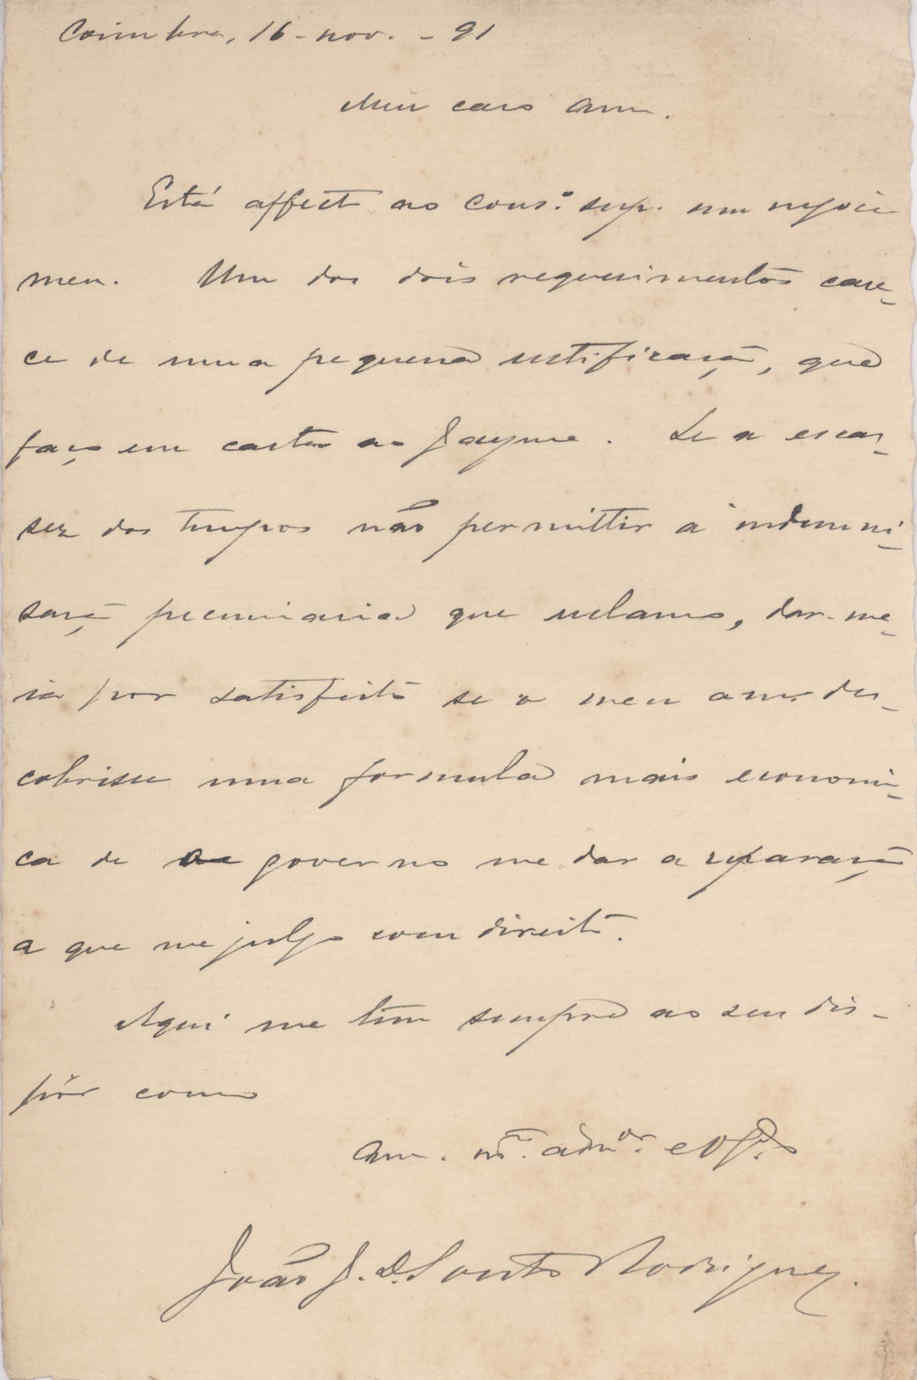 Coimbra, 16-nov. - 91
Meu caro Am.
Está affecto ao Cons.º sup. um negocio
meu. Um dos dois requerimentos care-
ce de uma pequena rectificação, que
faço em carta ao Jayme. Se a escas-
sez dos tempos não permittir a indemni-
sação pecuniaria que reclamo, dar-me-
ia por satisfeito se o meu am. des-
cobrisse uma formula mais economi-
ca de o governo me dar a reparação
a que me julgo com direito.
Aqui me tem sempre ao seu dis-
pôr como
Am. m.to adm.or e
João J. D. Souto Rodrigues.